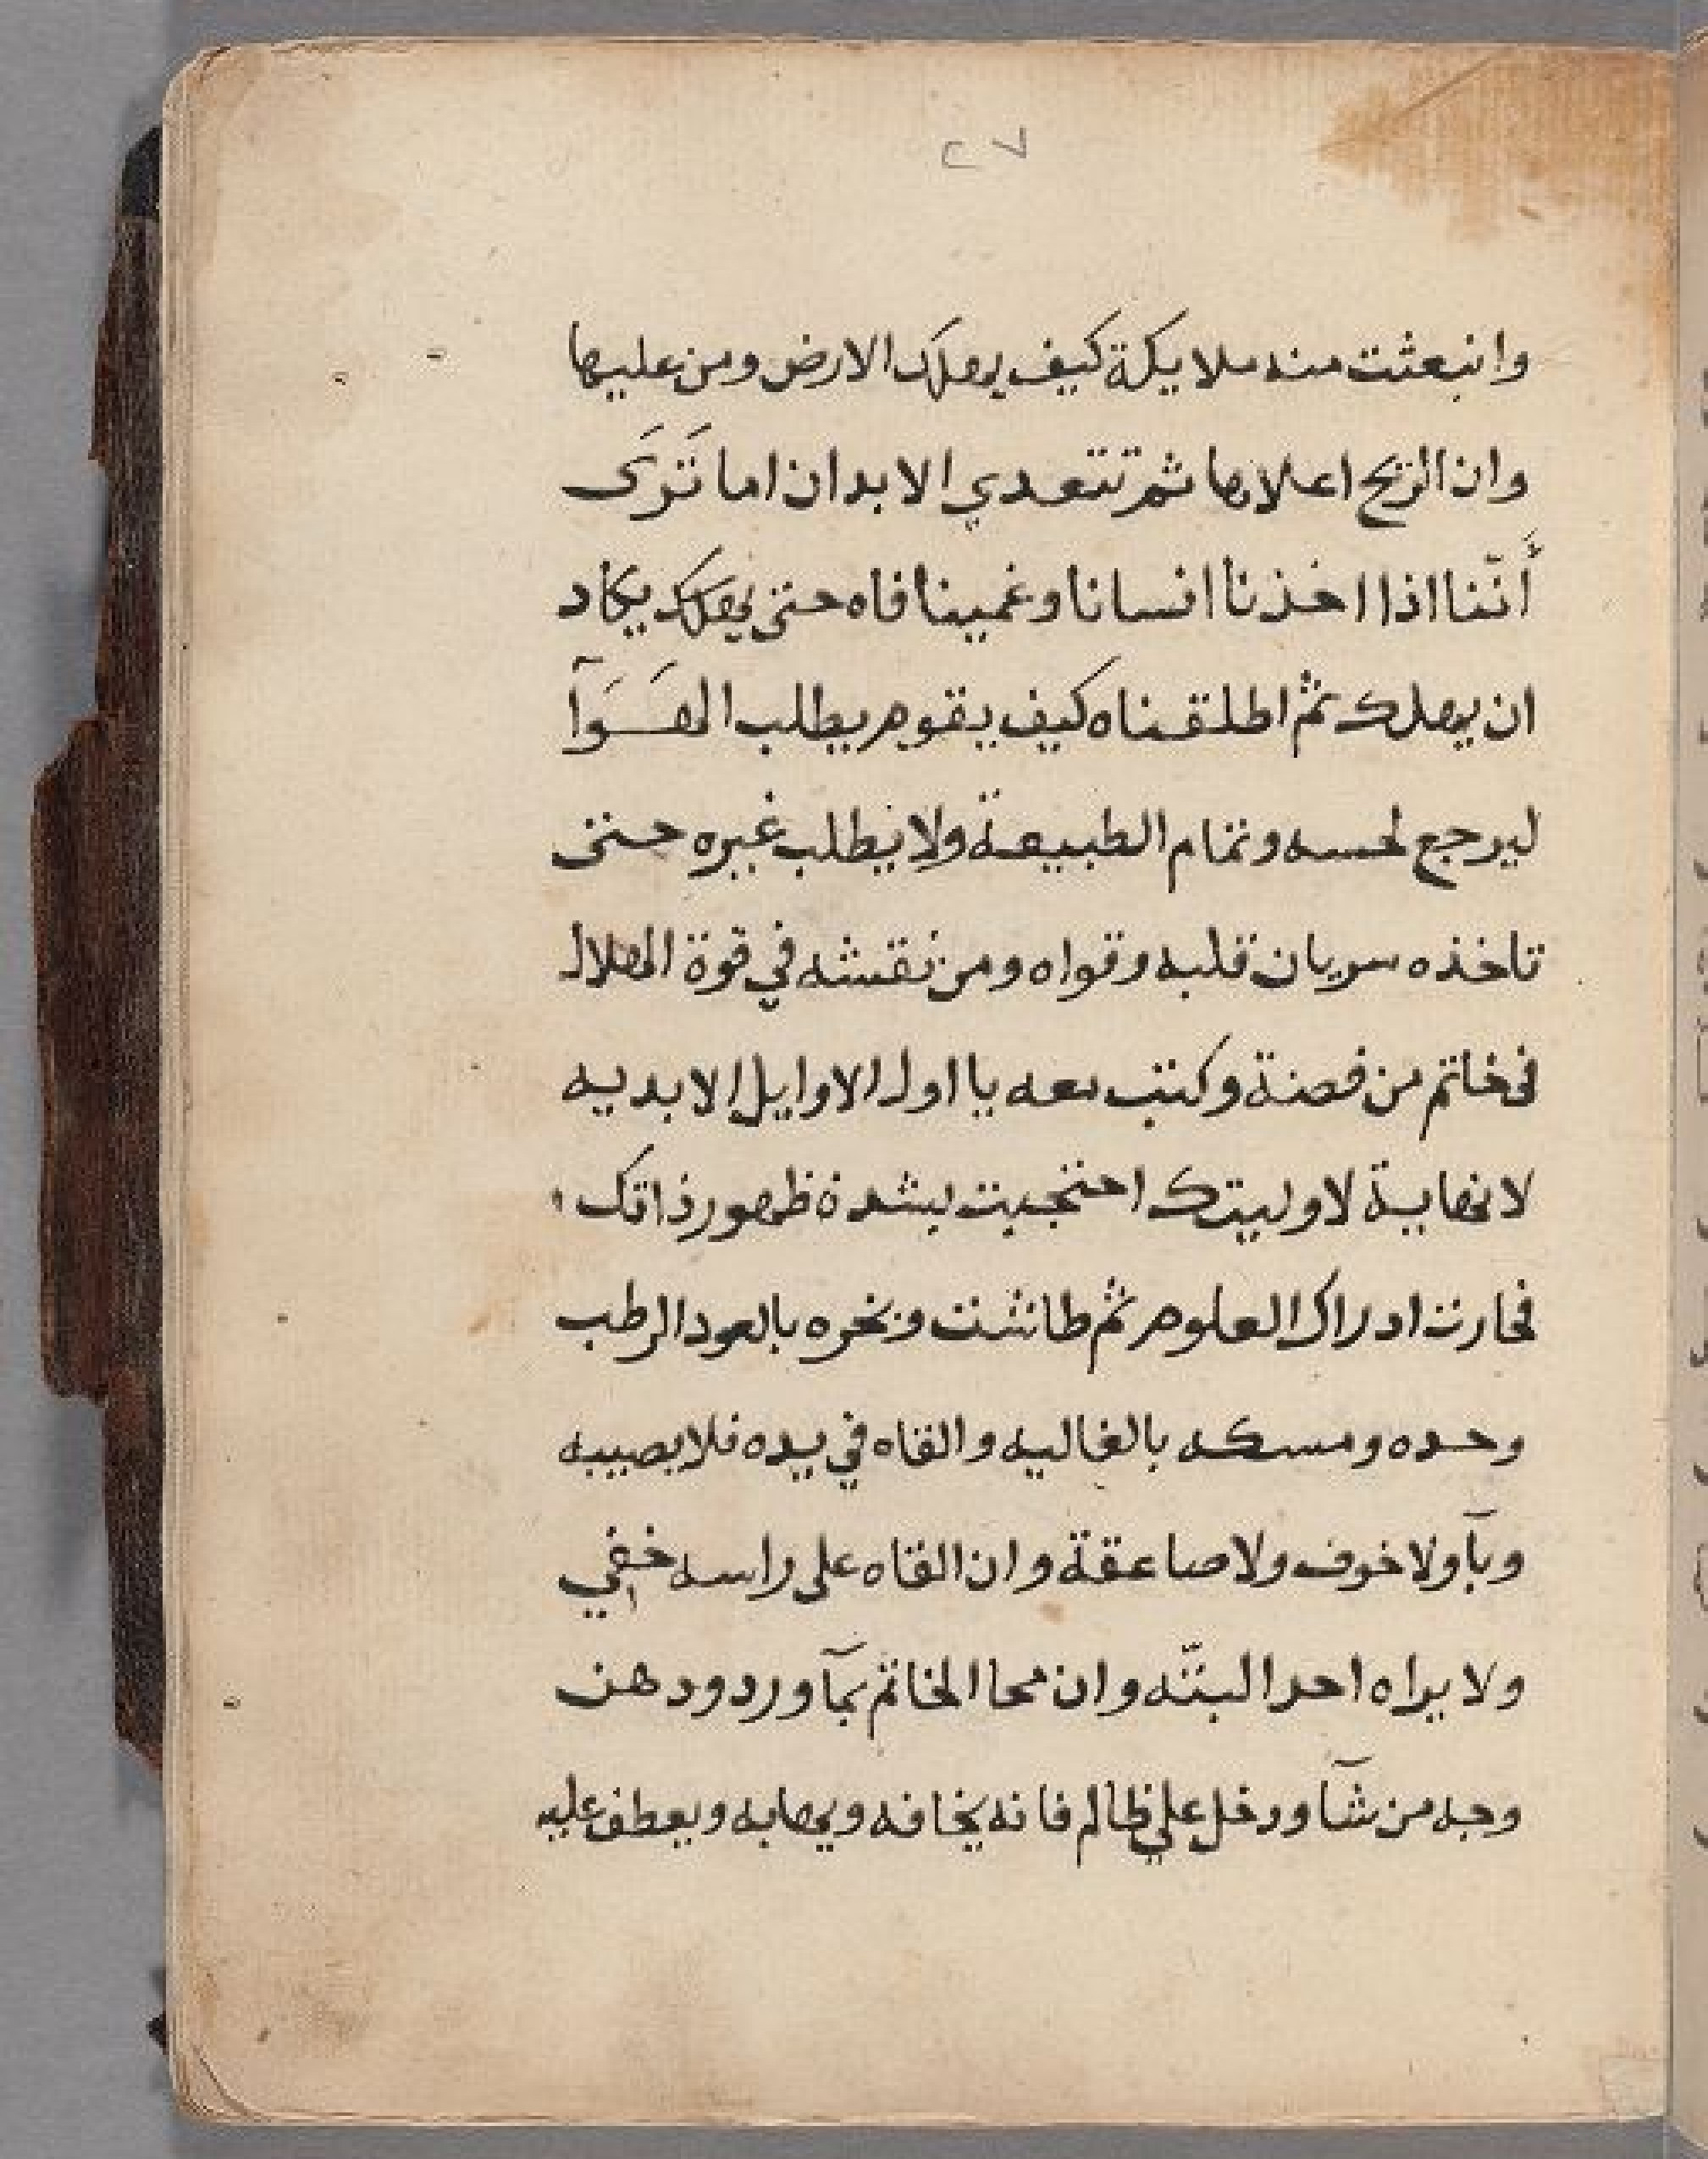 ٢٧
وانبعثت منه ملايكة كيف يهلك الارض ومن عليها
وان الريح اعلاها ثم تتعدي الابدان اما تَرَى
أنّنا اذا اخذنا انسانا وغمينا فاه حتى يهلك يكاد
ان يهلك ثم اطلقناه كيف يقوم يطلب الهَوَآ
ليرجع لحسه وتمام الطبيعة ولا يطلب غيره حتى
تاخذه سريان قلبه وقواه ومن نقشه في قوة الهلال
في خاتم من فضة وكتب معه يا اول الاوايل الابديه
لا نهاية لاوليتك احتجبت بشدة ظهور ذاتك
فحارت ادراك العلوم ثم طاشت وبخره بالعود الرطب
وحده ومسكه بالغاليه والقاه في يده فلا يصيبه
وبآ ولا خوف ولا صاعقة وان القاه على راسه خفي
ولا يراه احد البتّه وان محا الخاتم بمآ ورد ودهن
وجه من شآ ودخل علي ظالم فانه يخافه ويهابه ويعطف عليه